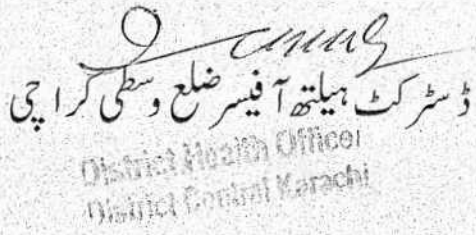 ڈسٹرکٹ ہیلتھ آفیسر ضلع وسطی کراچی
District Health Officer
District Central Karachi